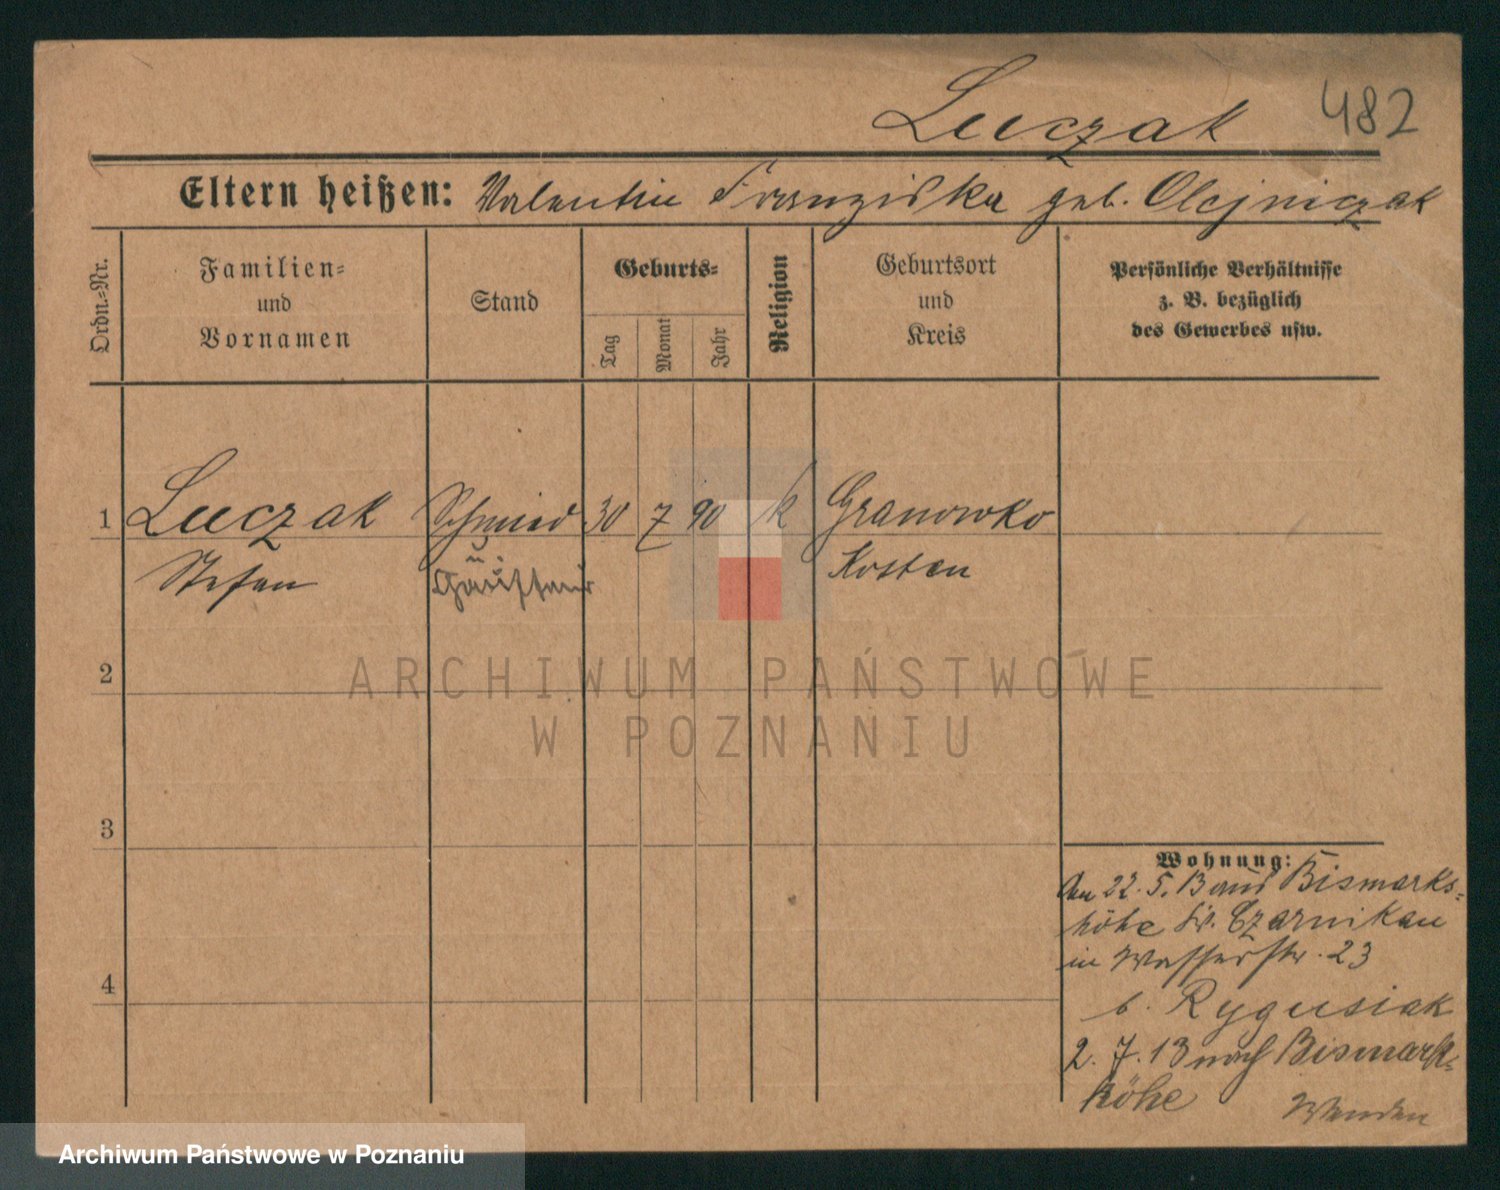 Luczak 482
Eltern heißen: Valentin Franziska geb. Olejniczak
Ordn.-Nr.
Familien-
und
Vornamen
Stand
Geburts-
Tag
Monat
Jahr
Religion
Geburtsort
und
Kreis
Persönliche Verhältnisse
z. B. bezüglich
des Gewerbes usw.
1 Luczak Schmied 30 7 90 k Granowko
Stefan Kosten
2
ARCHIWUM PAŃSTWOWE
W POZNANIU
3
4
Wohnung:
22.5.13 aus Bismarks-
höhe Kr. Czarnikau
in Wasserstr. 23
b. Rygusiak
2.7.13 nach Bismarks-
höhe Wenden
Archiwum Państwowe w Poznaniu